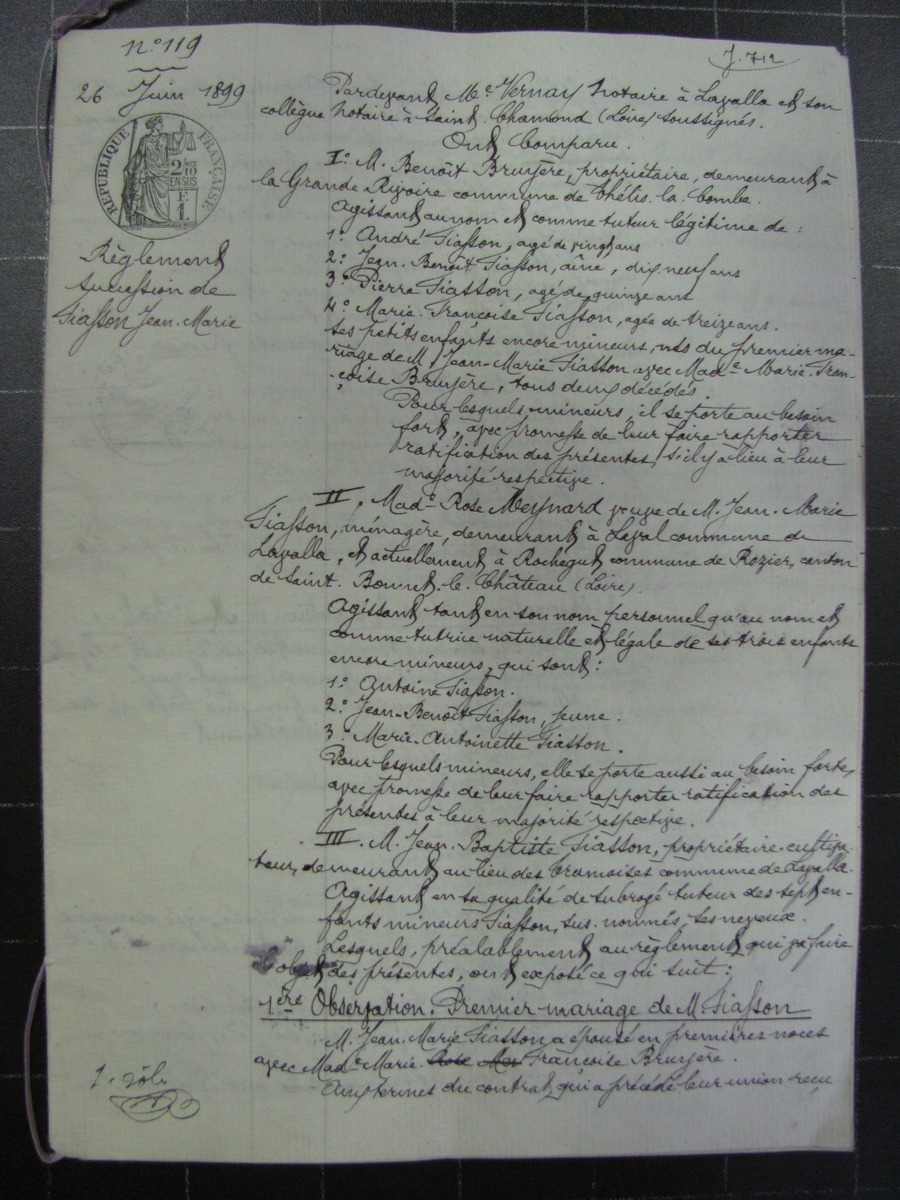 n° 119
J. 712
26 Juin 1899
RÉPUBLIQUE FRANÇAISE
2/10
EN SUS
F.
1.
Règlement
succession de
Fiasson Jean-Marie
Pardevant Me Vernay notaire à Lavalla et son
collègue notaire à Saint-Chamond (Loire) soussignés.
Ont Comparu.
I° M. Benoît Bruyère, propriétaire, demeurant à
la Grande Rivoire commune de Thélis-la-Combe.
Agissant au nom et comme tuteur légitime de :
1° André Fiasson, agé de vingt ans
2° Jean-Benoît Fiasson, aîné, dix neuf ans
3° Pierre Fiasson, agé de quinze ans
4° Marie-Francoise Fiasson, agée de treize ans.
ses petits enfants encore mineurs, nés du premier ma-
riage de M. Jean-Marie Fiasson avec Made Marie-Fran-
-coise Bruyère, tous deux décédés.
Pour lesquels mineurs, il se porte au besoin
fort, avec promesse de leur faire rapporter
ratification des présentes, s'il y a lieu à leur
majorité respective.
II. Made Rose Meynard veuve de M. Jean-Marie
Fiasson, ménagère, demeurant à Laval commune de
Lavalla, et actuellement à Rochegut commune de Rozier, canton
de Saint-Bonnet-le-Château (Loire).
Agissant tant en son nom personnel qu'au nom et
comme tutrice naturelle et légale de ses trois enfants
encore mineurs, qui sont :
1° Antoine Fiasson.
2° Jean-Benoît Fiasson, jeune.
3° Marie-Antoinette Fiasson.
Pour lesquels mineurs, elle se porte aussi au besoin forte,
avec promesse de leur faire rapporter ratification des
présentes à leur majorité respective.
III. M. Jean-Baptiste Fiasson, propriétaire-cultiva-
teur, demeurant au lieu des commune de Lavalla.
Agissant en sa qualité de subrogé tuteur des sept en-
fants mineurs Fiasson, sus-nommés, ses neveux.
Lesquels, préalablement au règlement qui va faire
l'objet des présentes, ont exposé ce qui suit :
1ère Observation. Premier mariage de M. Fiasson
M. Jean-Marie Fiasson a épousé en premières noces
avec Made Marie Rose Mey Francoise Bruyère.
Aux termes du contrat qui a précédé leur union reçu
1. rôle